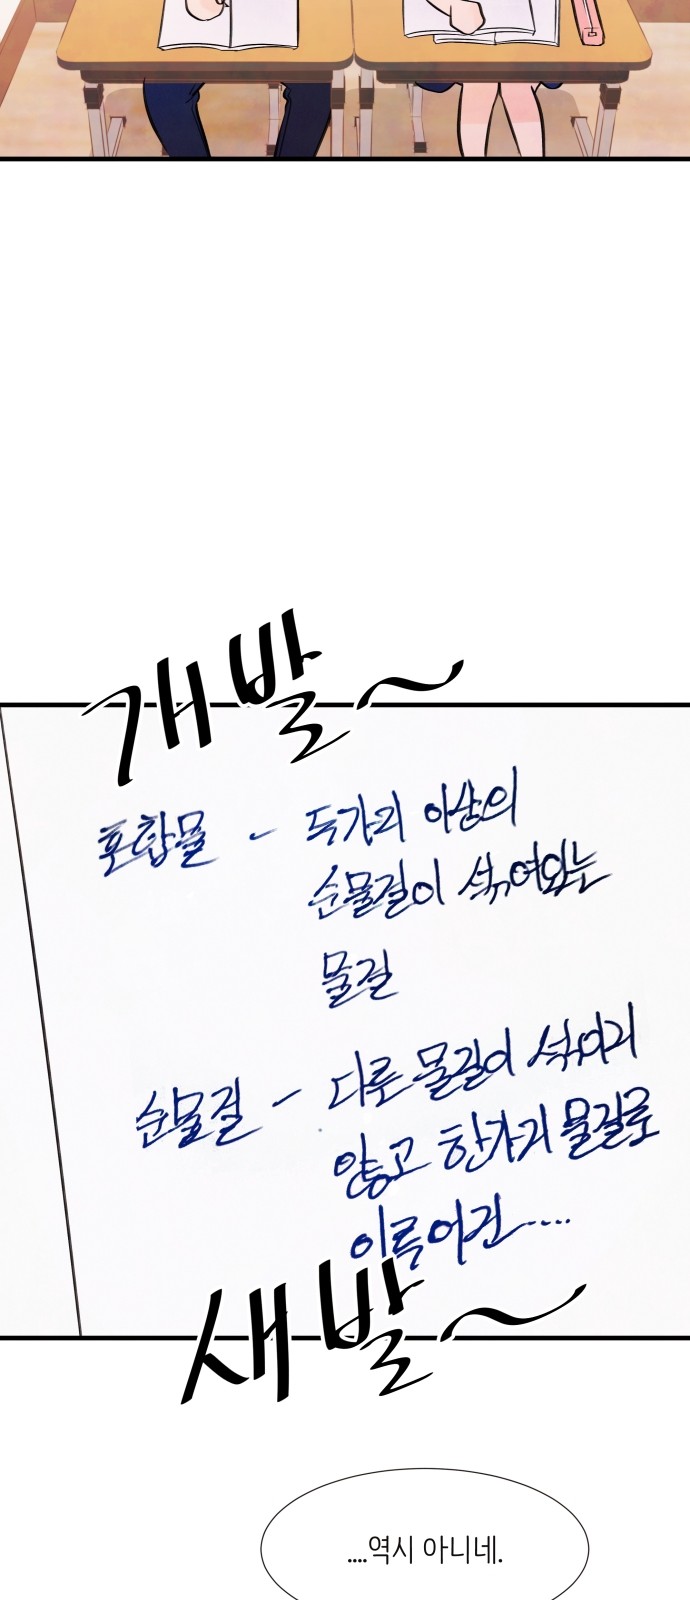 개발~
혼합물 - 두가지 이상의
순물질이 섞여있는
물질
순물질 - 다른 물질이 섞이지
않고 한가지 물질로
이루어진....
새발~
....역시 아니네.